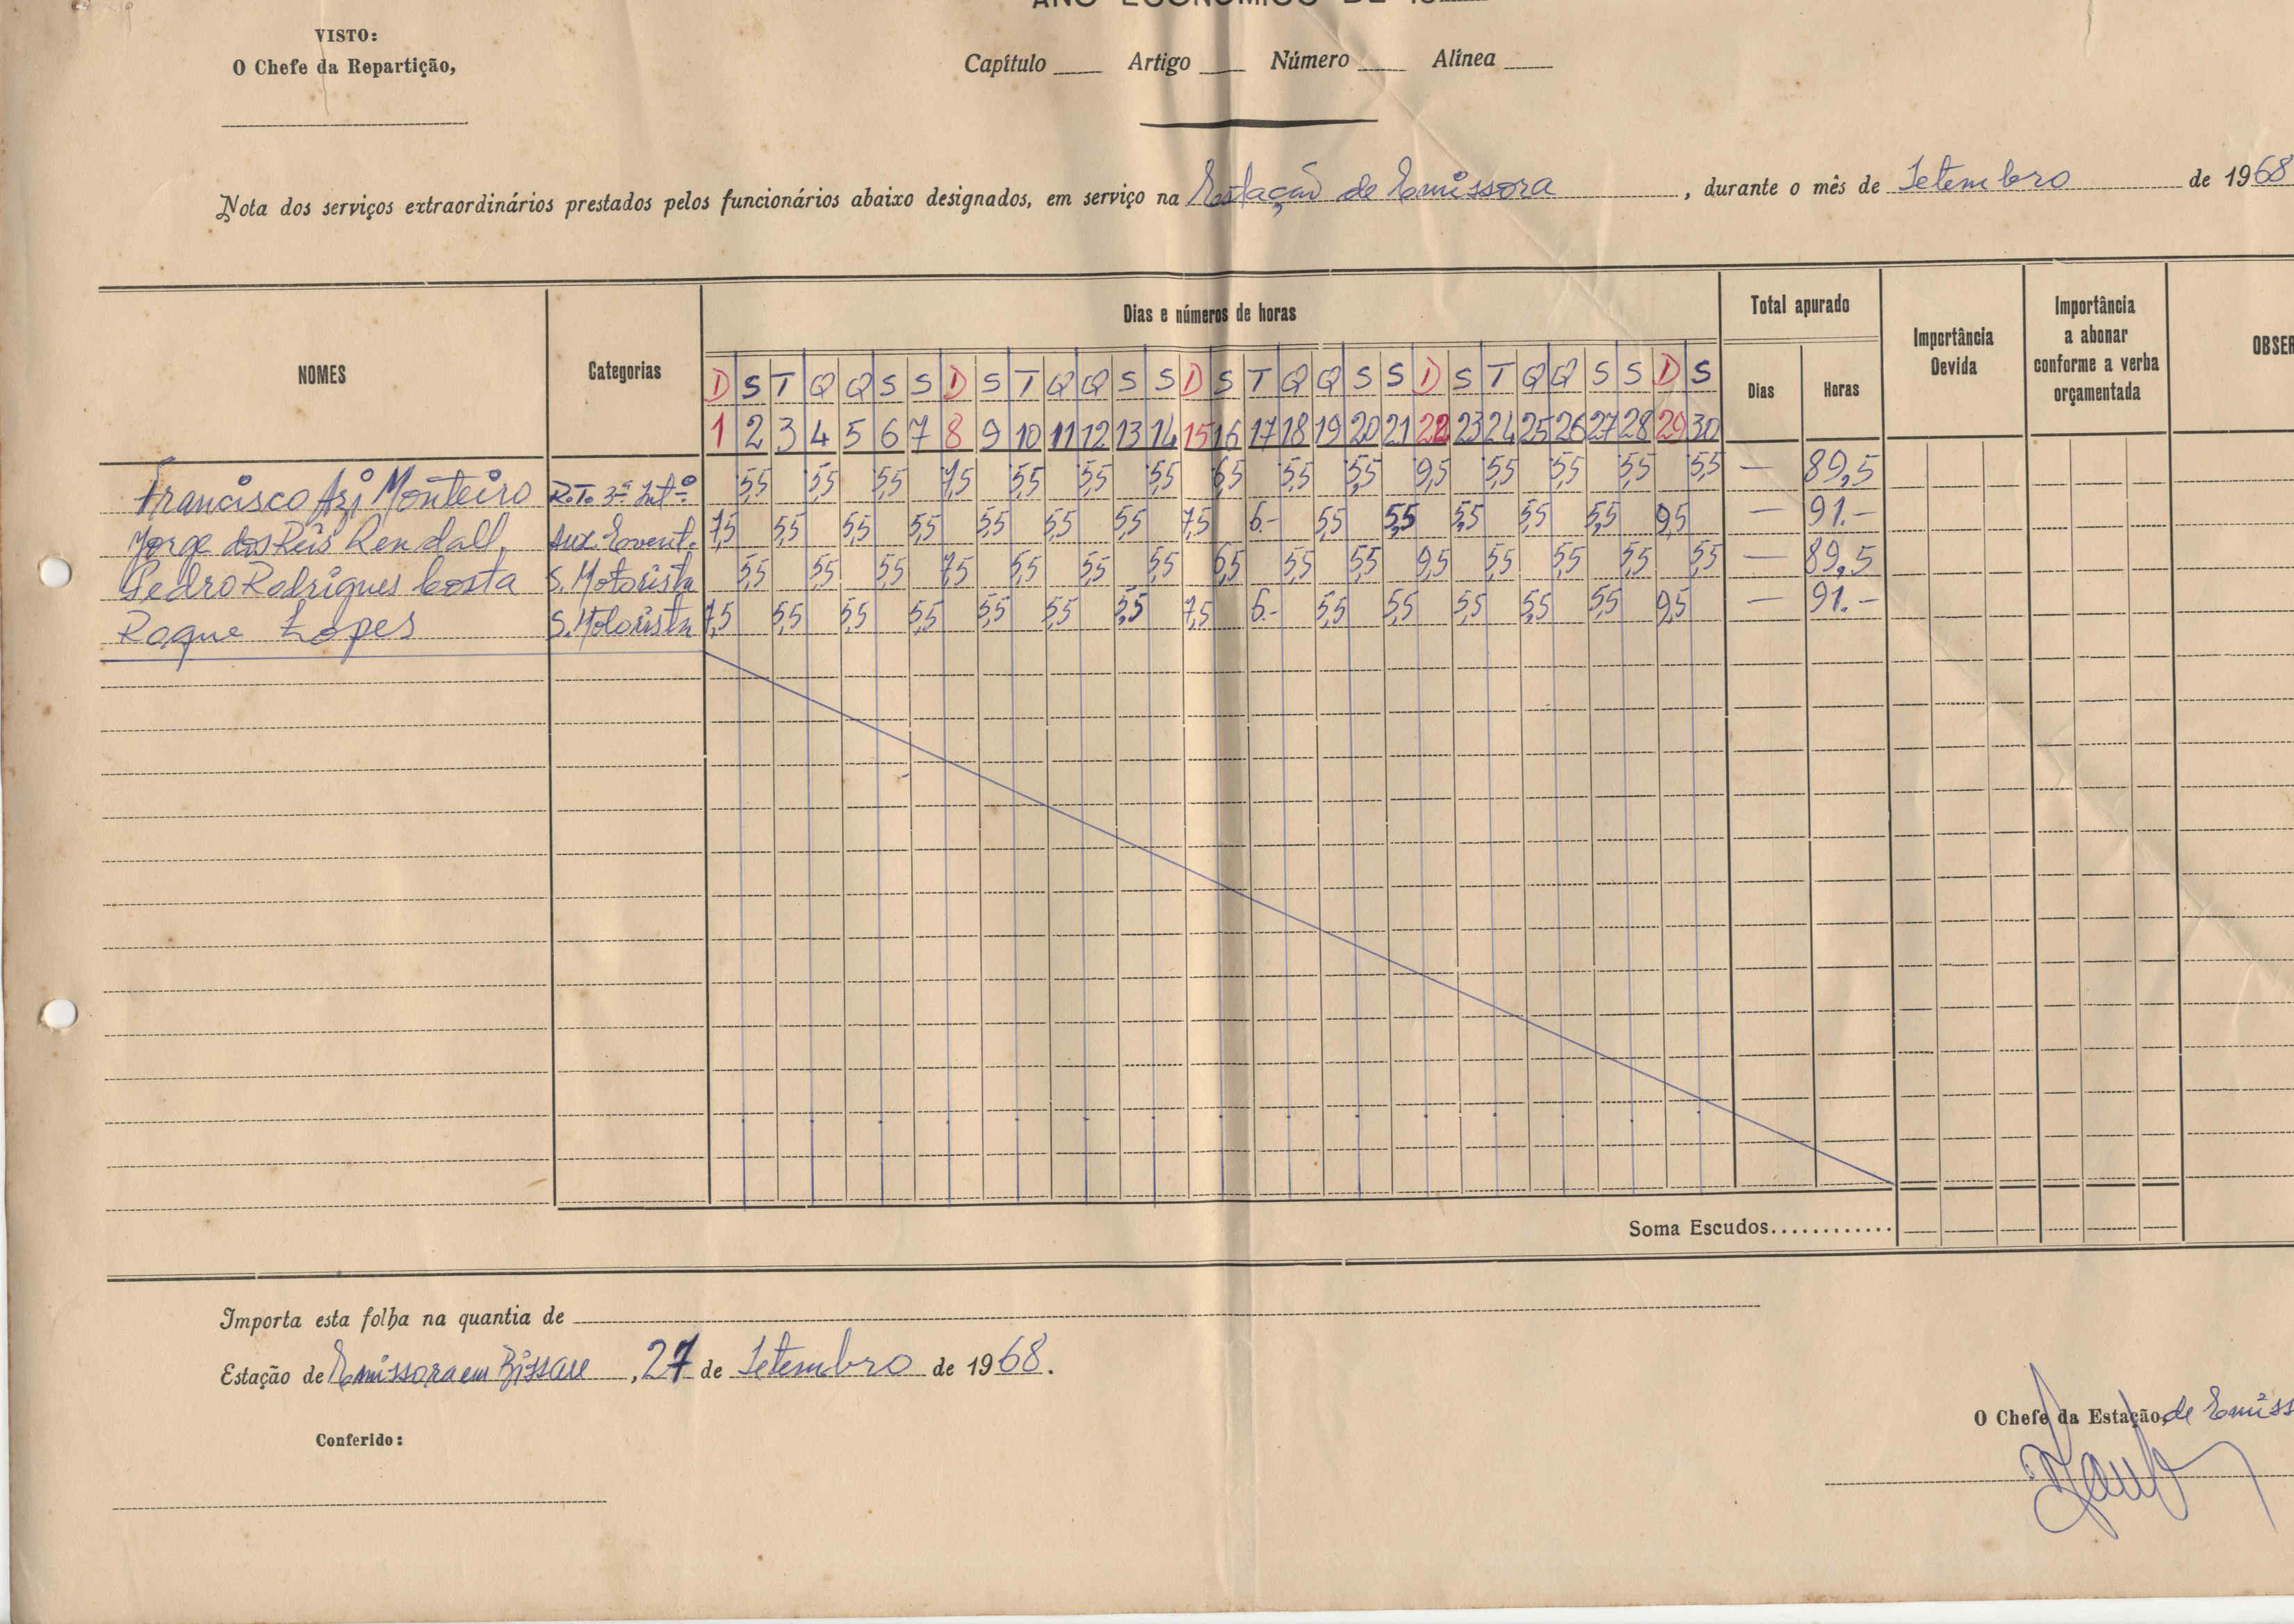 ANO ECONÓMICO DE 19
VISTO:
O Chefe da Repartição,
Capítulo ____ Artigo ____ Número ____ Alínea ____
Nota dos serviços extraordinários prestados pelos funcionários abaixo designados, em serviço na Estação de Emissora, durante o mês de Setembro de 1968
NOMES Categorias Dias e números de horas Total apurado Importância Devida Importância a abonar conforme a verba orçamentada OBSER
Dias Horas
D S T Q Q S S D S T Q Q S S D S T Q Q S S D S T Q Q S S D S
1 2 3 4 5 6 7 8 9 10 11 12 13 14 15 16 17 18 19 20 21 22 23 24 25 26 27 28 29 30
Francisco Azi Monteiro R.T. 3ª Intº 5,5 5,5 5,5 7,5 5,5 5,5 5,5 6,5 5,5 5,5 9,5 5,5 5,5 5,5 5,5 — 89,5
Jorge dos Reis Rendall, Aux. Event. 7,5 5,5 5,5 5,5 5,5 5,5 5,5 7,5 6.- 5,5 5,5 5,5 5,5 5,5 9,5 — 91.-
Pedro Rodrigues Costa S. Motorista 5,5 5,5 5,5 7,5 5,5 5,5 5,5 6,5 5,5 5,5 9,5 5,5 5,5 5,5 5,5 — 89,5
Roque Lopes S. Motorista 7,5 5,5 5,5 5,5 5,5 5,5 5,5 7,5 6.- 5,5 5,5 5,5 5,5 5,5 9,5 — 91.-
Soma Escudos............
Importa esta folha na quantia de
Estação de Emissora em Bissau, 27 de Setembro de 1968.
O Chefe da Estação, de Emiss
Conferido: